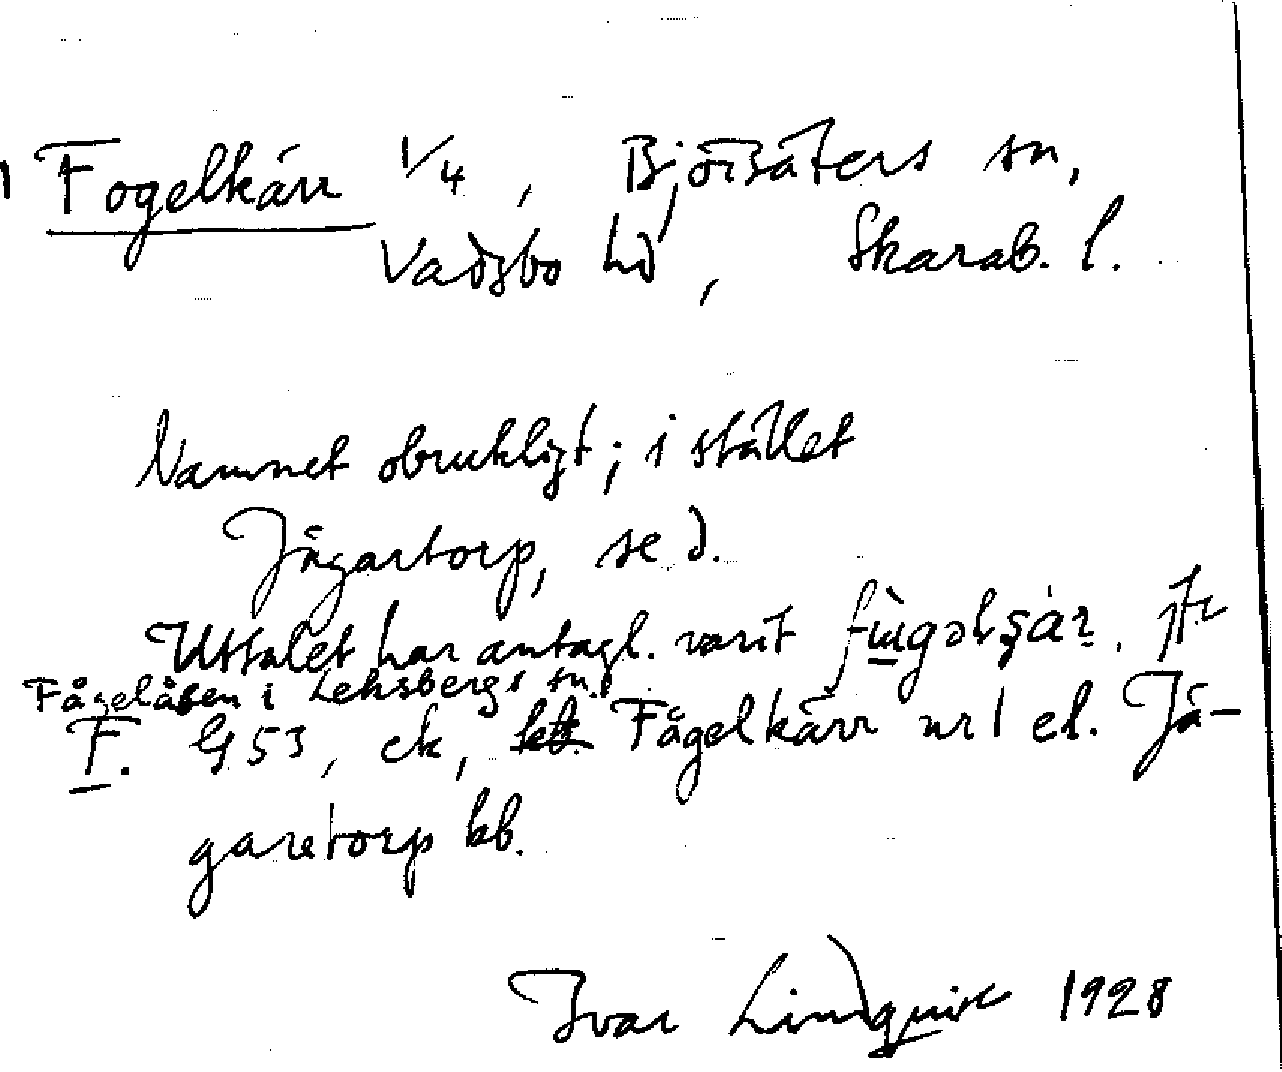 1 Fogelkärr 1/4, Björsäters sn,
Vadsbo hd, Skarab. l.
Namnet obrukligt; i stället
Jägartorp, se d.
Uttalet har antagl. varit jfr
Fågelåsen i Leksbergs sn.
F. G 53, ek, Fågelkärr nr 1 el. Jä-
garetorp kb.
Ivar Lindquist 1928